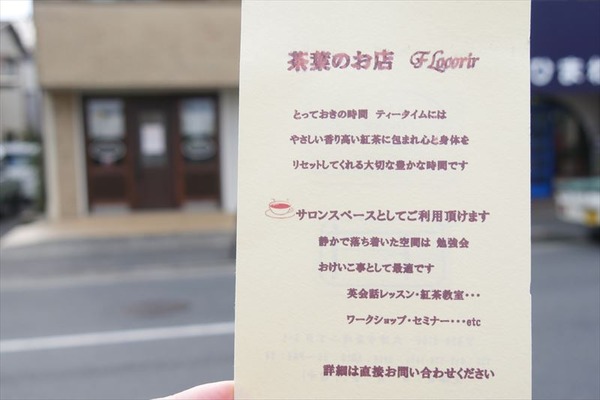 茶葉のお店 F Locorir
とっておきの時間 ティータイムには
やさしい香り高い紅茶に包まれ心と身体を
リセットしてくれる大切な豊かな時間です
サロンスペースとしてご利用頂けます
静かで落ち着いた空間は 勉強会
おけいこ事として最適です
英会話レッスン・紅茶教室・・・
ワークショップ・セミナー・・・etc
詳細は直接お問い合わせください
ひまわ